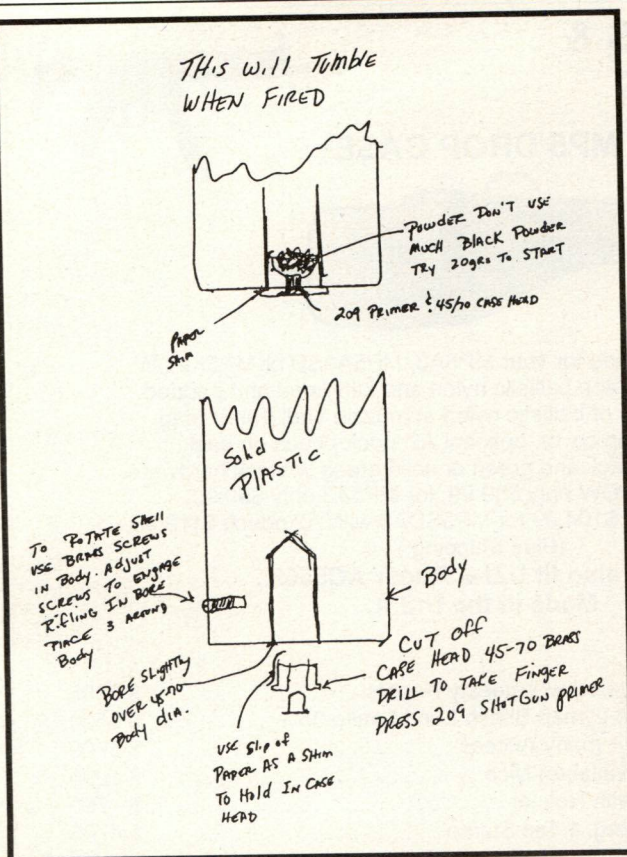 THIS WILL TUMBLE
WHEN FIRED
POWDER DON'T USE
MUCH BLACK POWDER
TRY 20grs TO START
209 PRIMER & 45/70 CASE HEAD
PAPER
SHIM
Solid
PLASTIC
TO ROTATE SHELL
USE BRASS SCREWS
IN BODY. ADJUST
SCREWS TO ENGAGE
RIFLING IN BORE
PLACE 3 AROUND
BODY
Body
BORE SLIGHTLY
OVER 45-70
BODY DIA.
CUT OFF
CASE HEAD 45-70 BRASS
DRILL TO TAKE FINGER
PRESS 209 SHOTGUN PRIMER
USE SLIP OF
PAPER AS A SHIM
TO HOLD IN CASE
HEAD